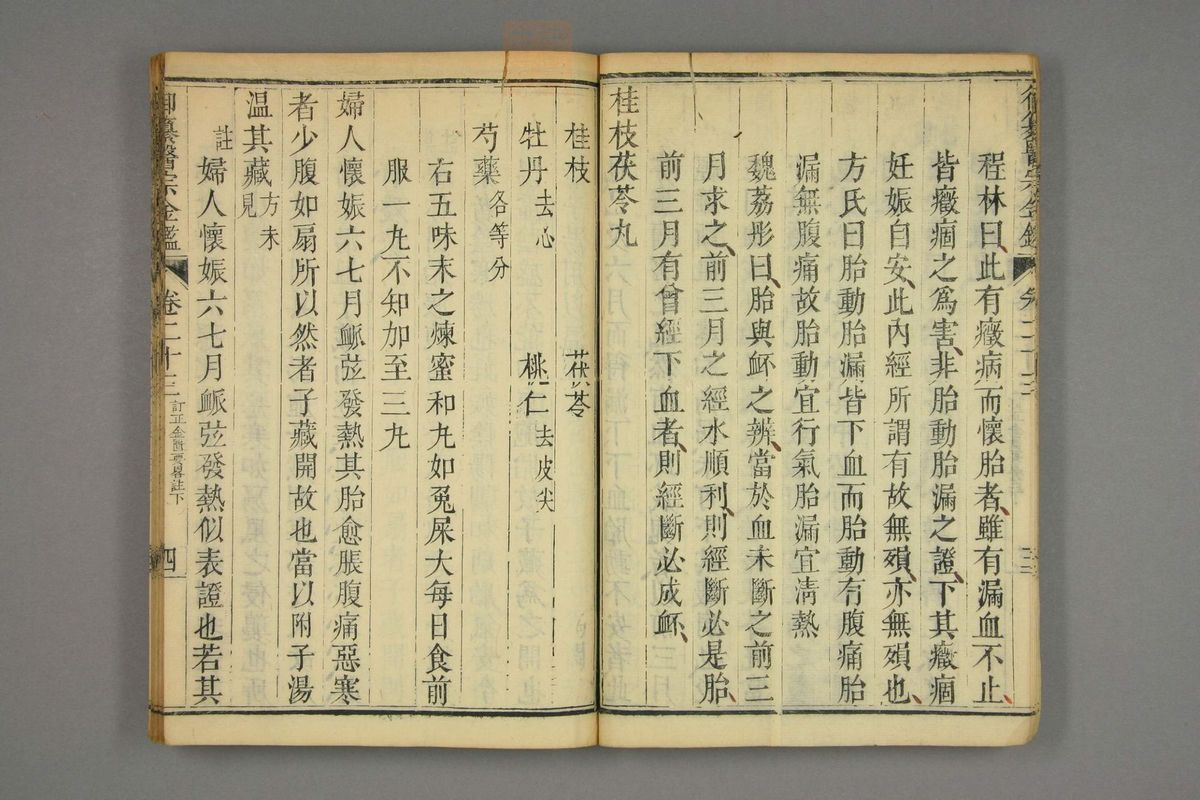 御纂醫宗金鑑 卷二十三 三
程林曰此有癥病而懷胎者雖有漏血不止
皆癥痼之為害非胎動胎漏之證下其癥痼
妊娠自安此內經所謂有故無殞亦無殞也
方氏曰胎動胎漏皆下血而胎動有腹痛胎
漏無腹痛故胎動宜行氣胎漏宜淸熱
魏荔彤曰胎與衃之辨當於血未斷之前三
月求之前三月之經水順利則經斷必是胎
前三月有曾經下血者則經斷必成衃
桂枝茯苓丸
桂枝 茯苓
牡丹去心 桃仁去皮尖
芍藥各等分
右五味末之煉蜜和丸如兔屎大每日食前
服一丸不知加至三丸
婦人懷娠六七月脈弦發熱其胎愈脹腹痛惡寒
者少腹如扇所以然者子藏開故也當以附子湯
溫其藏方未見
註婦人懷娠六七月脈弦發熱似表證也若其
御纂醫宗金鑑 卷二十三 訂正金匱要畧註下 四